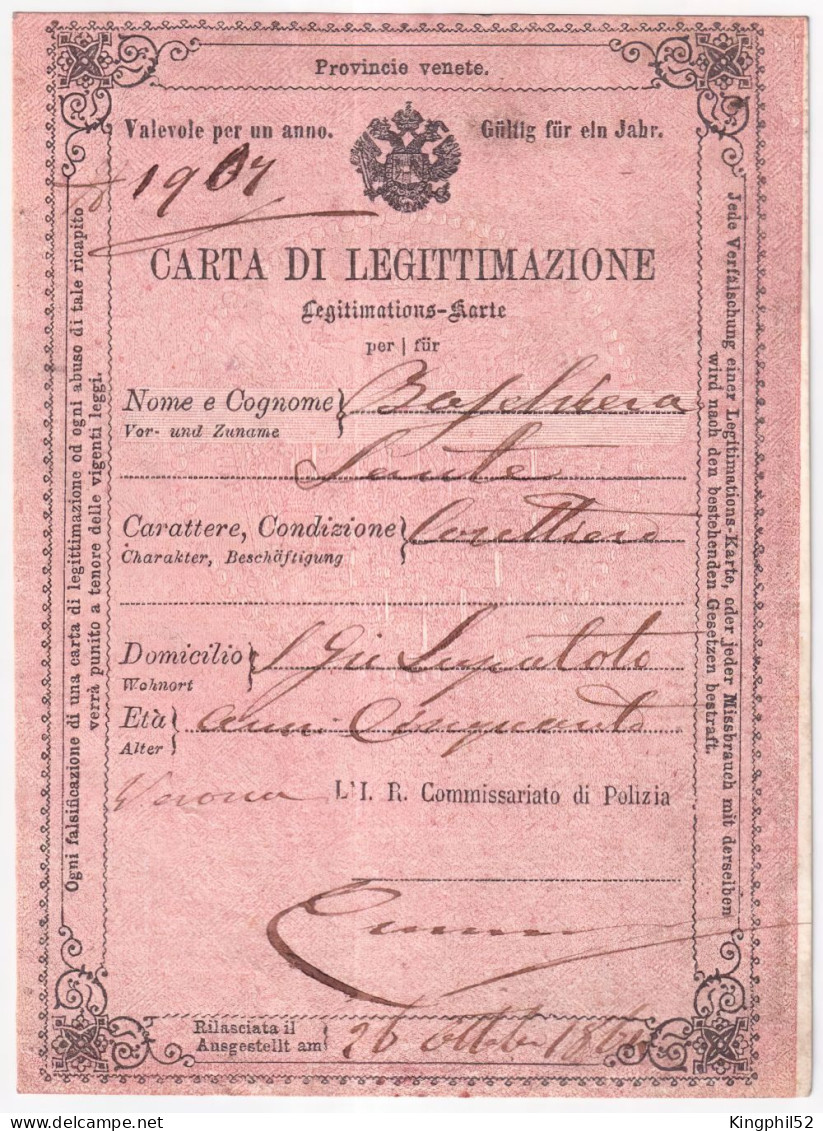 Provincie venete.
Valevole per un anno. Gültig für ein Jahr.
CARTA DI LEGITTIMAZIONE
Legitimations-Karte
per | für
Nome e Cognome
Vor- und Zuname
Sante
Carattere, Condizione
Charakter, Beschäftigung
Domicilio
Wohnort
Età anni Cinquanta
Alter
Verona L'I. R. Commissariato di Polizia
Rilasciata il
Ausgestellt am 26
Ogni falsificazione di una carta di legittimazione od ogni abuso di tale ricapito
verrà punito a tenore delle vigenti leggi.
Jede Verfälschung einer Legitimations-Karte, oder jeder Missbrauch mit derselben
wird nach den bestehenden Gesetzen bestraft.
Kingphil52